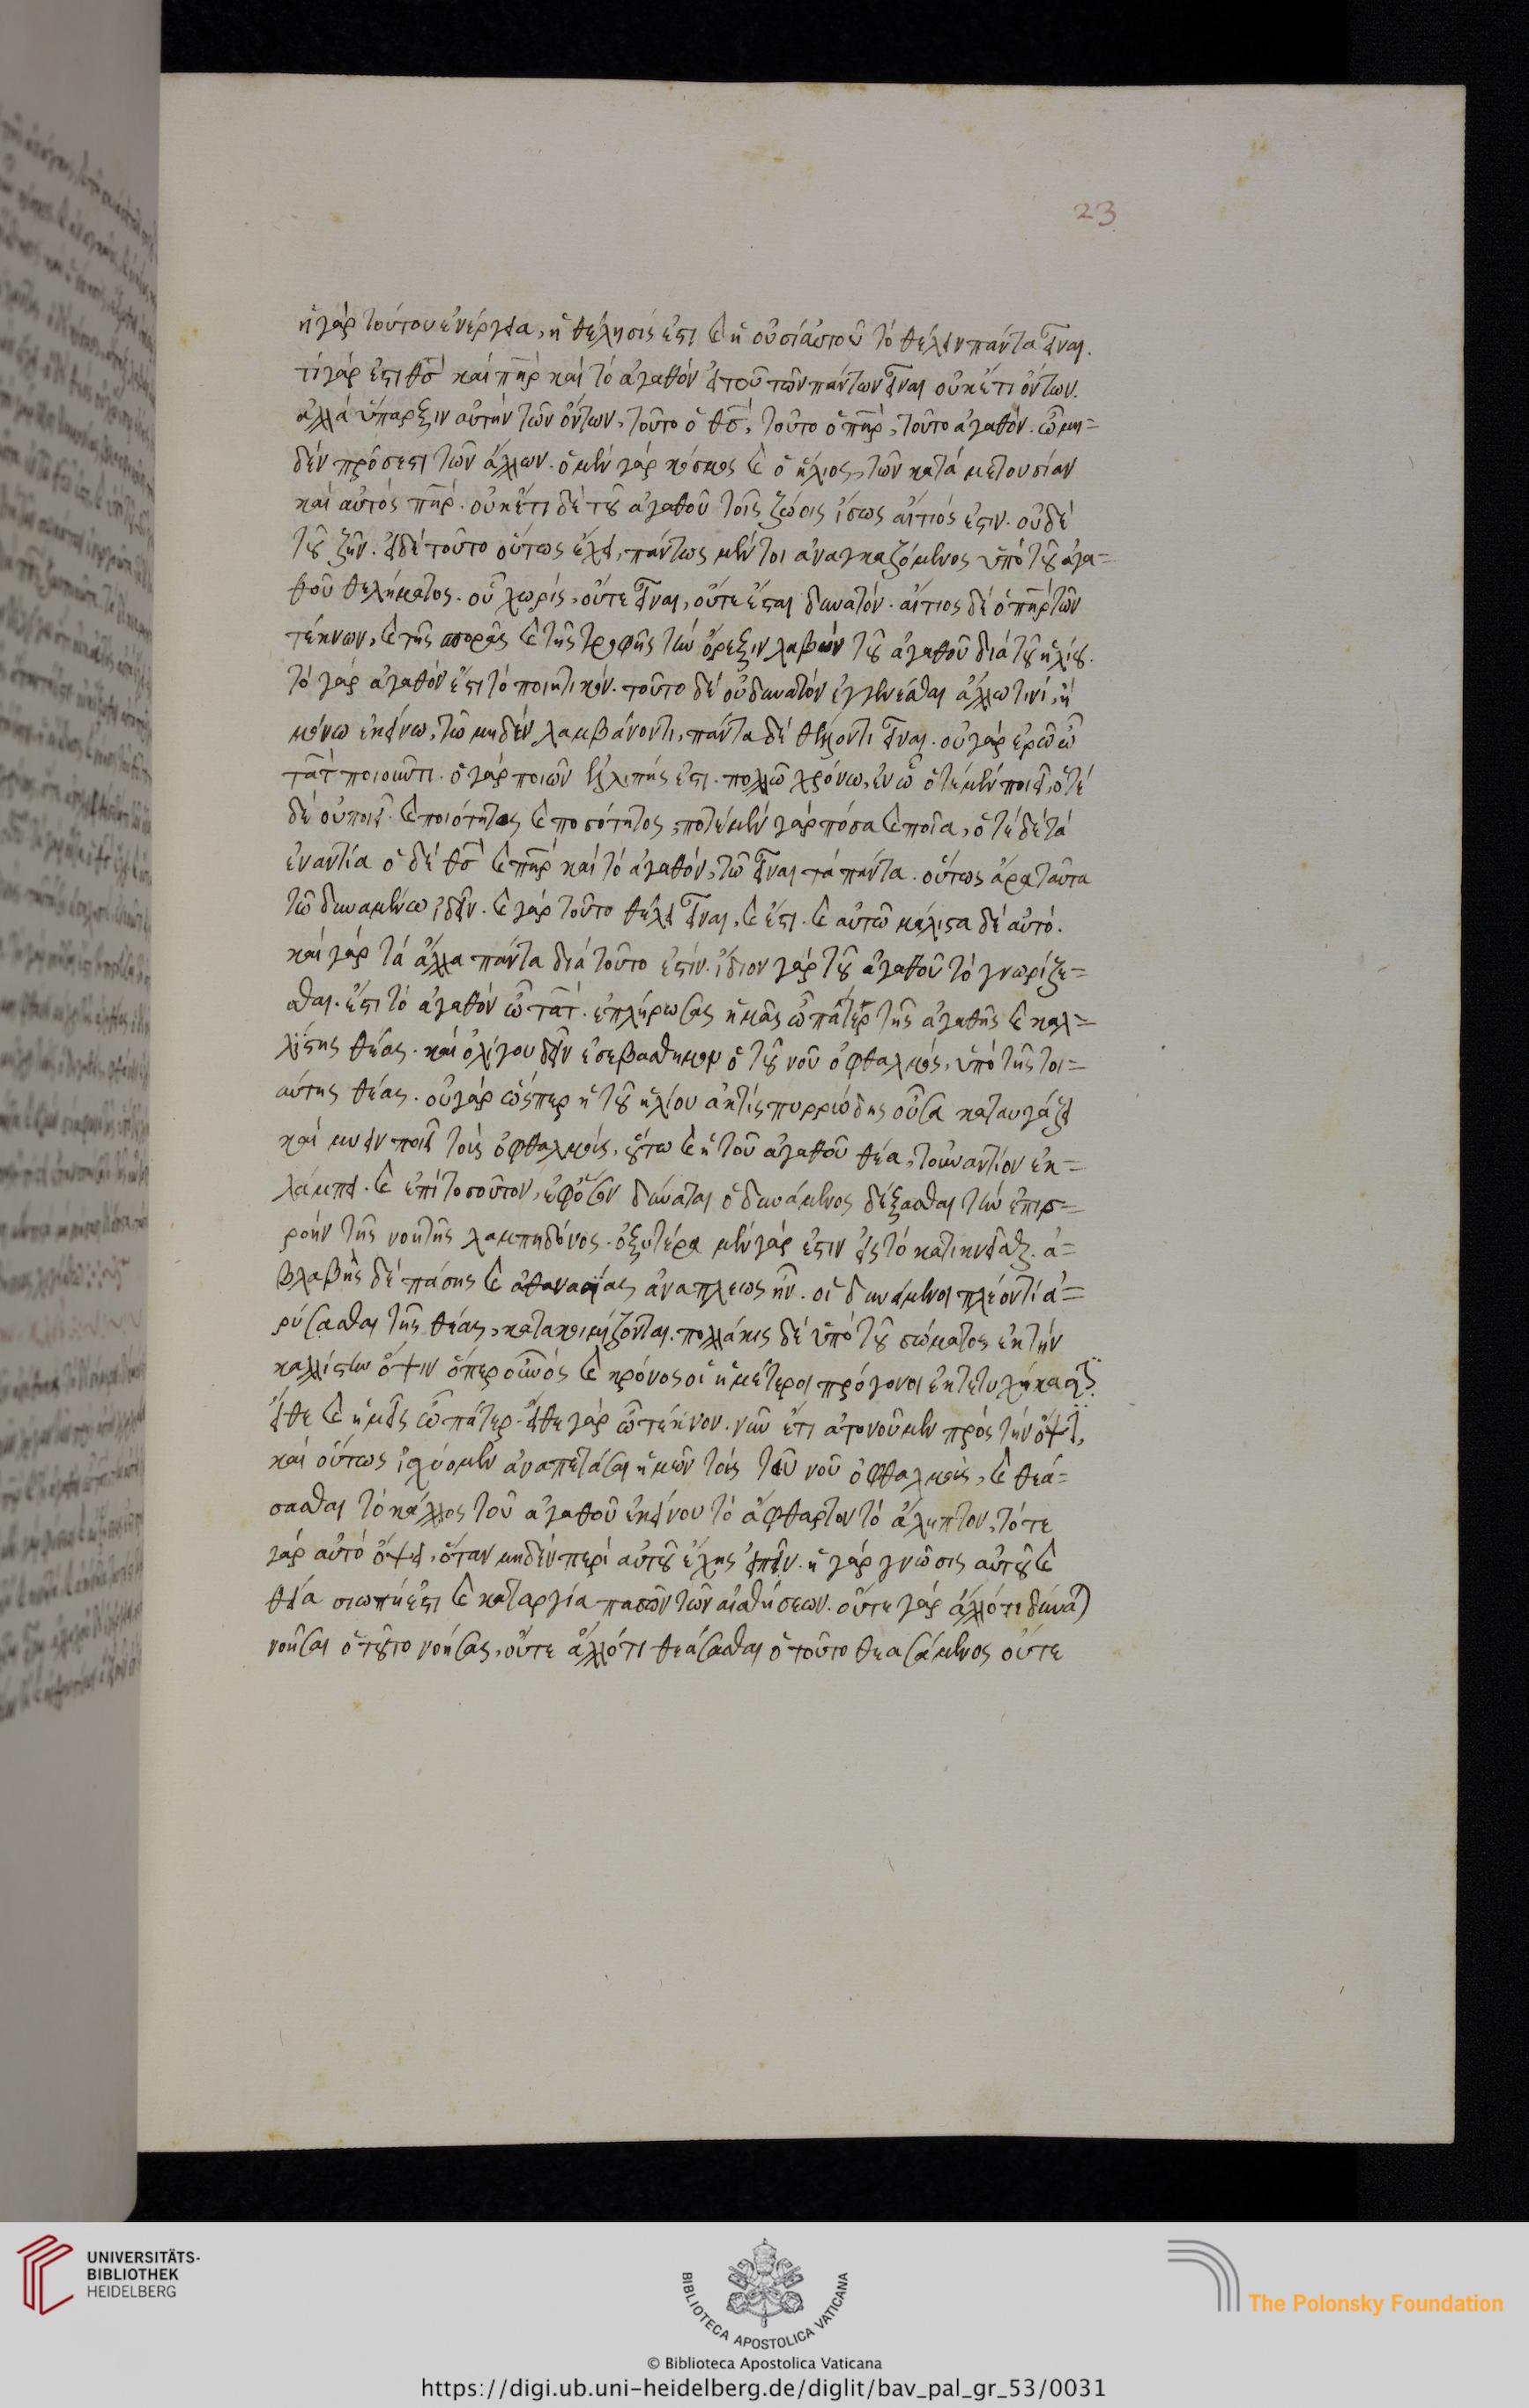 23
ἡ γὰρ τούτου ἐνέργεια, ἡ θέλησίς ἐστι καὶ ἡ οὐσία αὐτοῦ τὸ θέλειν πάντα εἶναι.
τί γάρ ἐστι θσ̅ καὶ πη̅ρ καὶ τὸ ἀγαθὸν ἢ τοῦ τῶν πάντων εἶναι οὐκ ἔτι ὄντων.
ἀλλὰ ὕπαρξιν αὐτὴν τῶν ὄντων, τοῦτο ὁ θσ̅, τοῦτο ὁ πη̅ρ, τοῦτο ἀγαθὸν. ὧ μη=
δὲν πρόσεστι τῶν ἄλλων. ὁ μὲν γὰρ κόσμος καὶ ὁ ἥλιος, τῶν κατὰ μετουσίαν
καὶ αὐτὸς πη̅ρ. οὐκέτι δὲ τοῦ ἀγαθοῦ τοῖς ζώοις ἴσως αἴτιός ἐστιν. οὐδὲ
τοῦ ζῆν. εἰ δὲ τοῦτο οὕτως ἔχει, πάντως μέντοι ἀναγκαζόμενος ὑπὸ τοῦ ἀγα=
θοῦ θελήματος. οὗ χωρὶς, οὔτε εἶναι, οὔτε ἔσται δυνατόν. αἴτιος δὲ ὁ πη̅ρ τῶν
τέκνων, καὶ τῆς σπορᾶς καὶ τῆς τροφῆς τὴν ὄρεξιν λαβὼν τοῦ ἀγαθοῦ διὰ τοῦ ἡλίου.
τὸ γὰρ ἀγαθόν ἐστι τὸ ποιητικόν. τοῦτο δὲ οὐ δυνατὸν ἐγγενέσθαι ἄλλω τινὶ, ἢ
μόνω ἐκείνω, τῶ μηδὲν λαμβάνοντι, πάντα δὲ θέλοντι εἶναι. οὐ γὰρ ἐρῶ ὦ
τα̅τ ποιοῦντι. ὁ γὰρ ποιῶν ἐλλιπής ἐστι. πολλῶ χρόνω, ἐν ὧ ὁτὲ μὲν ποιεῖ, ὁτὲ
δὲ οὐ ποιεῖ. καὶ ποιότητος καὶ ποσότητος, ποτὲ μὲν γὰρ πόσα καὶ ποῖα, ὁτὲ δὲ τὰ
ἐναντία ὁ δὲ θσ̅ καὶ πη̅ρ καὶ τὸ ἀγαθόν, τῶ εἶναι τὰ πάντα. οὕτως ἄρα ταῦτα
τῶ δυναμένω ἰδεῖν. καὶ γὰρ τοῦτο θέλει εἶναι, καὶ ἔστι. καὶ αὐτῶ μάλιστα δὲ αὐτό.
καὶ γὰρ τὰ ἄλλα πάντα διὰ τοῦτο ἐστίν. ἴδιον γὰρ τοῦ ἀγαθοῦ τὸ γνωρίζε=
σθαι. ἔστι τὸ ἀγαθὸν ὦ τα̅τ. ἐπλήρωσας ἡμᾶς ὦ πάτερ τῆς ἀγαθῆς καὶ καλ=
λίστης θέας. καὶ ὀλίγου δεῖν ἐσεβάσθη μου ὁ τοῦ νοῦ ὀφθαλμὸς, ὑπὸ τῆς τοι=
αύτης θέας. οὐ γὰρ ὥσπερ ἡ τοῦ ἡλίου ἀκτὶς πυρριώδης οὖσα καταυγάζει
καὶ μύειν ποιεῖ τοὺς ὀφθαλμοὺς, οὕτω καὶ ἡ τοῦ ἀγαθοῦ θέα, τοὐναντίον ἐκ=
λάμπει. καὶ ἐπὶ τοσοῦτον, ἐφ' ὅσον δύναται ὁ δυνάμενος δέξασθαι τὴν ἐπισ=
ροὴν τῆς νοητῆς λαμπηδόνος. ὀξυτέρα μὲν γάρ ἐστιν εἰς τὸ κατικνεῖσθαι. ἀ=
βλαβὴς δὲ πάσης καὶ ἀθανασίας ἀνάπλεως ἦν. οἱ δυνάμενοι πλέον τι ἀ=
ρύσασθαι τῆς θέας, κατακοιμίζονται. πολλάκις δὲ ὑπὸ τοῦ σώματος ἐκ τὴν
καλλίστην ὄψιν ὅπερ οὐρανὸς καὶ κρόνος οἱ ἡμέτεροι πρόγονοι ἐκτετυχήκασι
εἴθε καὶ ἡμεῖς ὦ πάτερ. εἴθε γὰρ ὦ τέκνον. νῦν ἔτι ἀτονοῦμεν πρὸς τὴν ὄψιν,
καὶ οὕτως ἰσχύομεν ἀναπετάσαι ἡμῶν τοὺς τοῦ νοῦ ὀφθαλμοὺς, καὶ θεά=
σασθαι τὸ κάλλος τοῦ ἀγαθοῦ ἐκείνου τὸ ἄφθαρτον τὸ ἄληπτον, τότε
γὰρ αὐτὸ ὄψει, ὅταν μηδὲν περὶ αὐτοῦ ἔχης εἰπεῖν. ἡ γὰρ γνῶσις αὐτοῦ καὶ
θεία σιωπή ἐστι καὶ καταργία πασῶν τῶν αἰσθήσεων. οὔτε γὰρ ἄλλό τι δύναται
νοῆσαι ὁ τοῦτο νοήσας, οὔτε ἄλλό τι θεάσασθαι ὁ τοῦτο θεασάμενος οὔτε
UNIVERSITÄTS-
BIBLIOTHEK
HEIDELBERG
BIBLIOTECA APOSTOLICA VATICANA
The Polonsky Foundation
© Biblioteca Apostolica Vaticana
https://digi.ub.uni-heidelberg.de/diglit/bav_pal_gr_53/0031